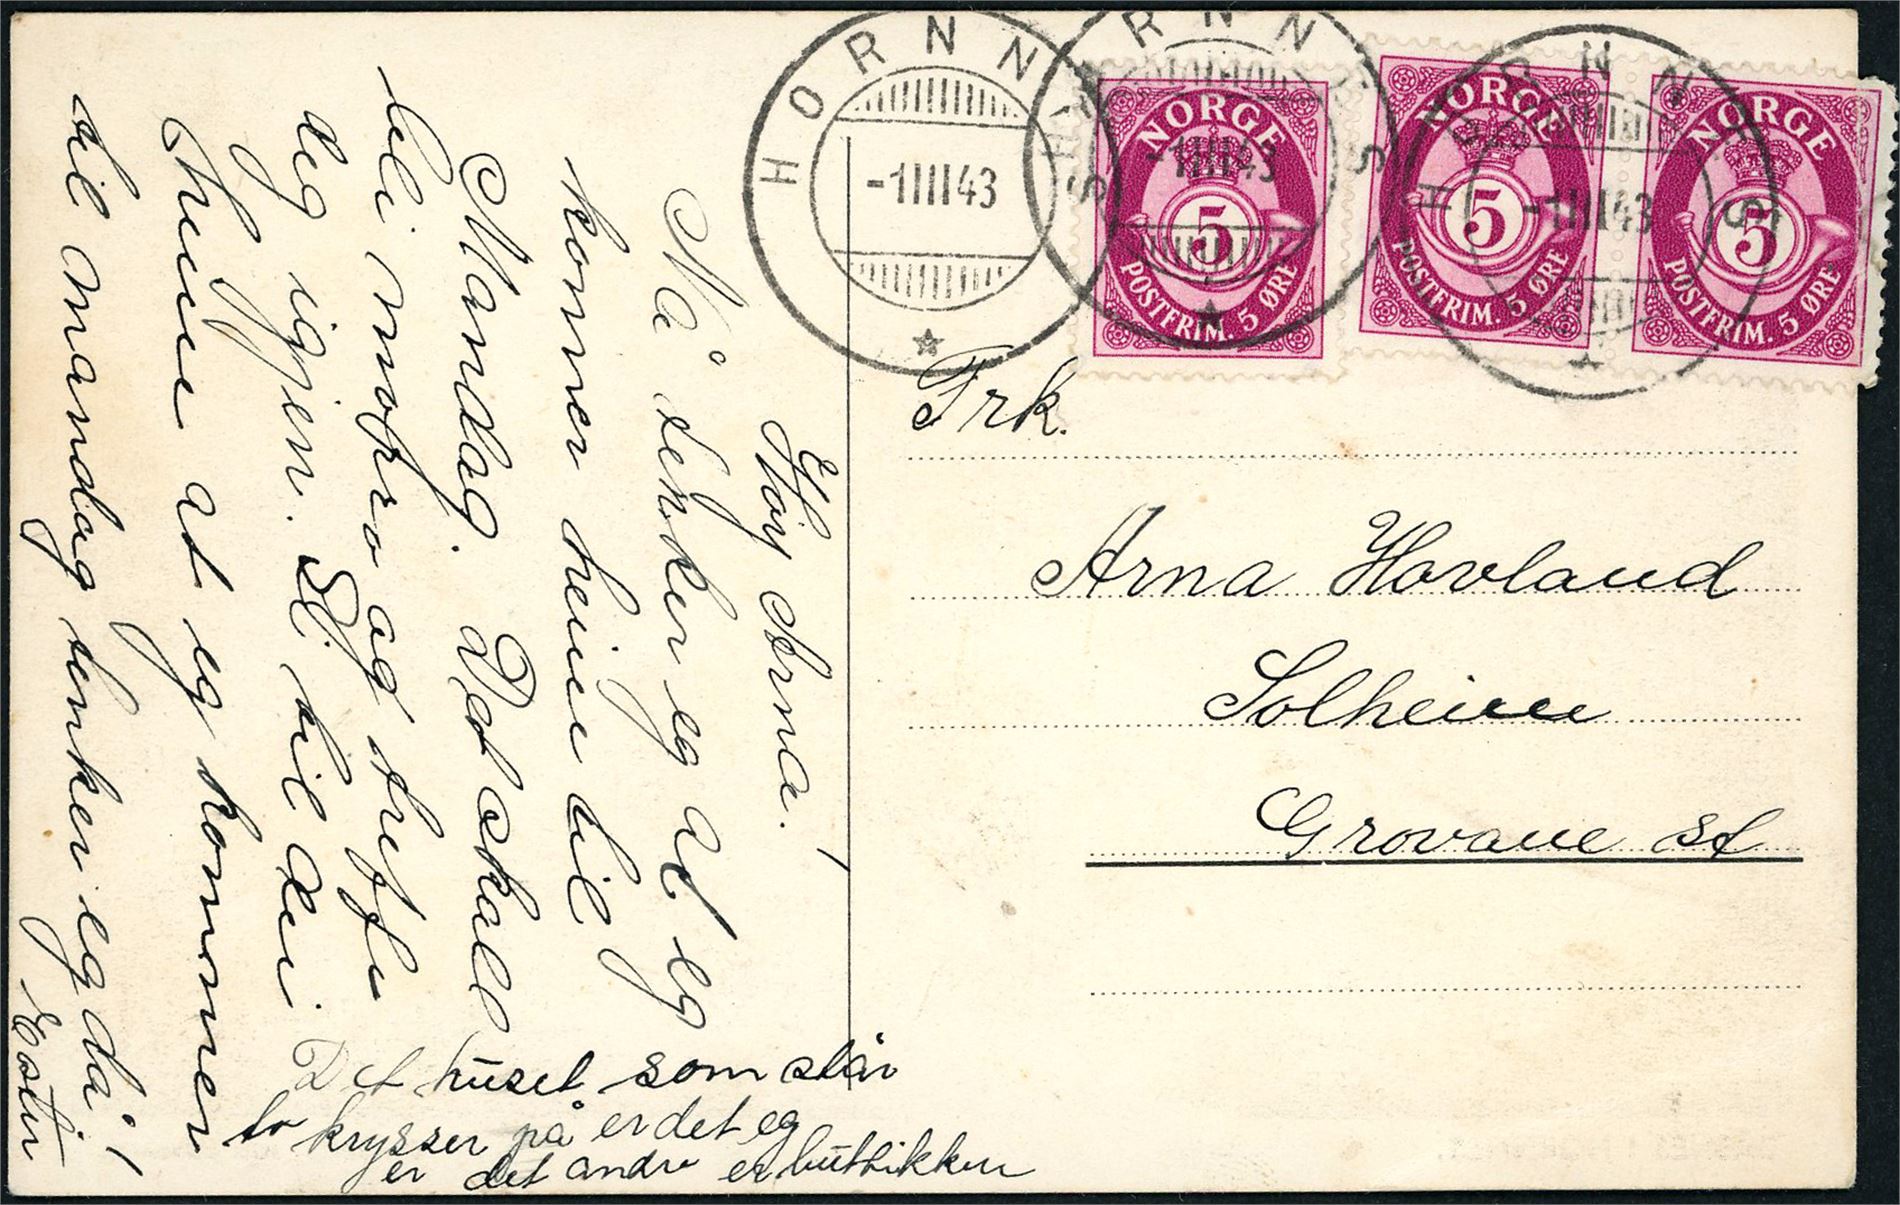 HORNNES
-1 III 43
HORNNES
-1 III 43
HORNNES
-1 III 43
NORGE
5
POSTFRIM. 5 ØRE
NORGE
5
POSTFRIM. 5 ØRE
NORGE
5
POSTFRIM. 5 ØRE
Frk.
Arna Hovland
Solheim
Grovane st
Hoy Arna!
Nå tenker eg at eg
kommer heim til
Mandag. Det skall
bli mofro og treffe
deg igjen. Si til dei
heime at eg kommer
til mandag tenker eg då!
Ester
Det huset som står
to krysser på er det eg
er det andre er buttikken